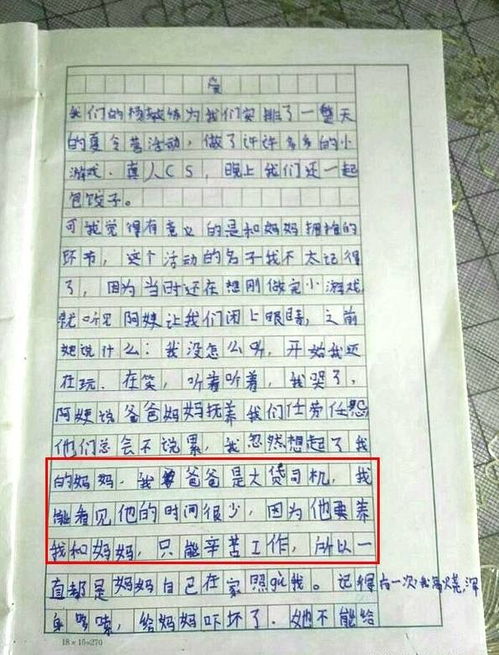 爱
我们的杨教练为我们安排了一整天
的夏令营活动，做了许许多多的小
游戏、真人CS，晚上我们还一起
包饺子。
可我觉得有意义的是和妈妈拥抱的
环节，这个活动的名子我不太记得
了，因为当时还在想刚做完小游戏
就听见阿姨让我们闭上眼睛，之前
她说什么：我没怎么听，开始我还
在玩、在笑，听着听着，我哭了，
阿姨说爸爸妈妈抚养我们任劳任怨
他们总会不说累，我忽然想起了我
的妈妈。我爸爸是大货司机，我
能看见他的时间很少，因为他要养
我和妈妈，只能辛苦工作，所以一
直都是妈妈自己在家照gù我。记得有一次我高烧，浑
身哆嗦，给妈妈吓坏了。她不能给
18×15=270